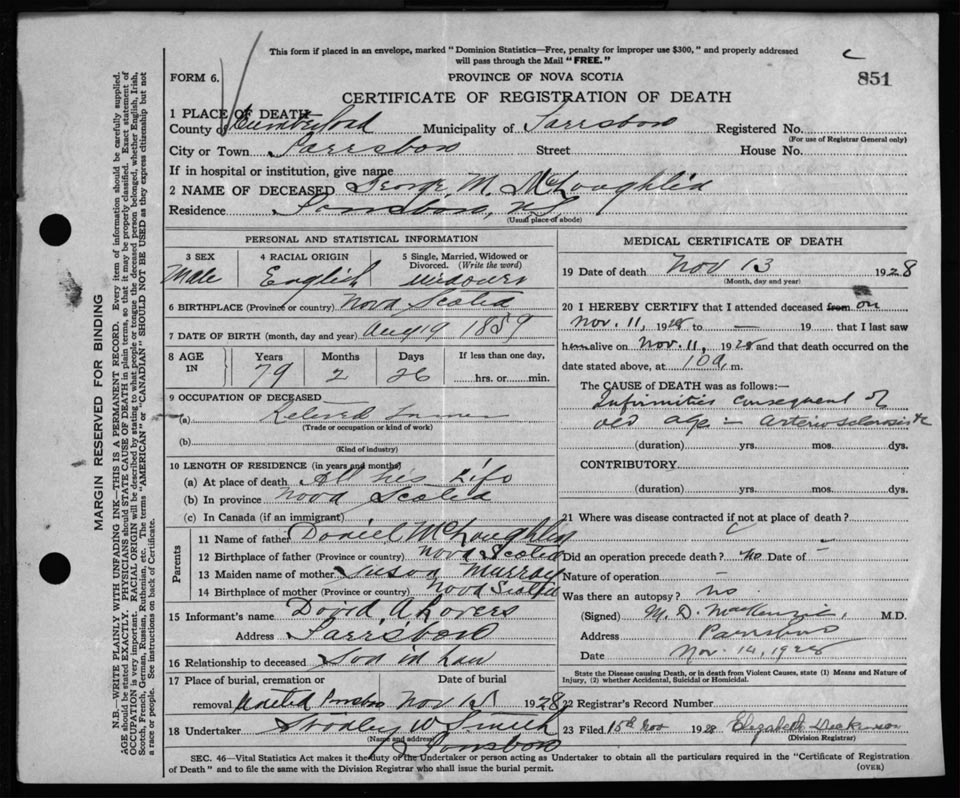 This form if placed in an envelope, marked "Dominion Statistics—Free, penalty for improper use $300," and properly addressed
will pass through the Mail "FREE."
C
851
FORM 6.
PROVINCE OF NOVA SCOTIA
CERTIFICATE OF REGISTRATION OF DEATH
1 PLACE OF DEATH
County of Cumberland Municipality of Parrsboro Registered No.
(For use of Registrar General only)
City or Town Parrsboro Street House No.
If in hospital or institution, give name
2 NAME OF DECEASED George M McLaughlin
Residence Parrsboro, N.S.
(Usual place of abode)
PERSONAL AND STATISTICAL INFORMATION
3 SEX 4 RACIAL ORIGIN 5 Single, Married, Widowed or Divorced. (Write the word)
Male English widower
6 BIRTHPLACE (Province or country) Nova Scotia
7 DATE OF BIRTH (month, day and year) Aug 19 1859
8 AGE IN Years Months Days If less than one day,
79 2 26 hrs. or min.
9 OCCUPATION OF DECEASED
(a) Retired
(Trade or occupation or kind of work)
(b)
(Kind of industry)
10 LENGTH OF RESIDENCE (in years and months)
(a) At place of death All his Life
(b) In province Nova Scotia
(c) In Canada (if an immigrant)
Parents
11 Name of father Daniel McLaughlin
12 Birthplace of father (Province or country) Nova Scotia
13 Maiden name of mother Susan Murray
14 Birthplace of mother (Province or country) Nova Scotia
15 Informant's name David A
Address Parrsboro
16 Relationship to deceased Son in Law
17 Place of burial, cremation or Date of burial
removal United Nov 15 1928
18 Undertaker W Smith
(Name and address)
Parrsboro
MEDICAL CERTIFICATE OF DEATH
19 Date of death Nov 13 1928
(Month, day and year)
20 I HEREBY CERTIFY that I attended deceased from on
Nov. 11, 1928 to — 19 that I last saw
him alive on Nov. 11, 1928 and that death occurred on the
date stated above, at 10 a. m.
The CAUSE OF DEATH was as follows:—
Infirmities consequent of
old age — arteriosclerosis etc
(duration) yrs. mos. dys.
CONTRIBUTORY
(duration) yrs. mos. dys.
21 Where was disease contracted if not at place of death?
Did an operation precede death? No Date of —
Nature of operation —
Was there an autopsy? no
(Signed) M. D. MacKenzie, M.D.
Address Parrsboro
Date Nov. 14, 1928
State the Disease causing Death, or in death from Violent Causes, state (1) Means and Nature of Injury, (2) whether Accidental, Suicidal or Homicidal.
22 Registrar's Record Number
23 Filed 15th Nov 1928 Elizabeth
(Division Registrar)
SEC. 46—Vital Statistics Act makes it the duty of the Undertaker or person acting as Undertaker to obtain all the particulars required in the "Certificate of Registration
of Death" and to file the same with the Division Registrar who shall issue the burial permit.
(OVER)
MARGIN RESERVED FOR BINDING
N.B.—WRITE PLAINLY WITH UNFADING INK—THIS IS A PERMANENT RECORD. Every item of information should be carefully supplied.
AGE should be stated EXACTLY. PHYSICIANS should STATE CAUSE OF DEATH in plain terms, so that it may be properly classified. Exact statement of
OCCUPATION is very important. RACIAL ORIGIN will be described by stating to what people or tongue the deceased person belonged, whether English, Irish,
Scotch, French, German, Russian, Ruthenian, etc. The terms "AMERICAN" or "CANADIAN" SHOULD NOT BE USED as they express citizenship but not
a race or people. See instructions on back of Certificate.